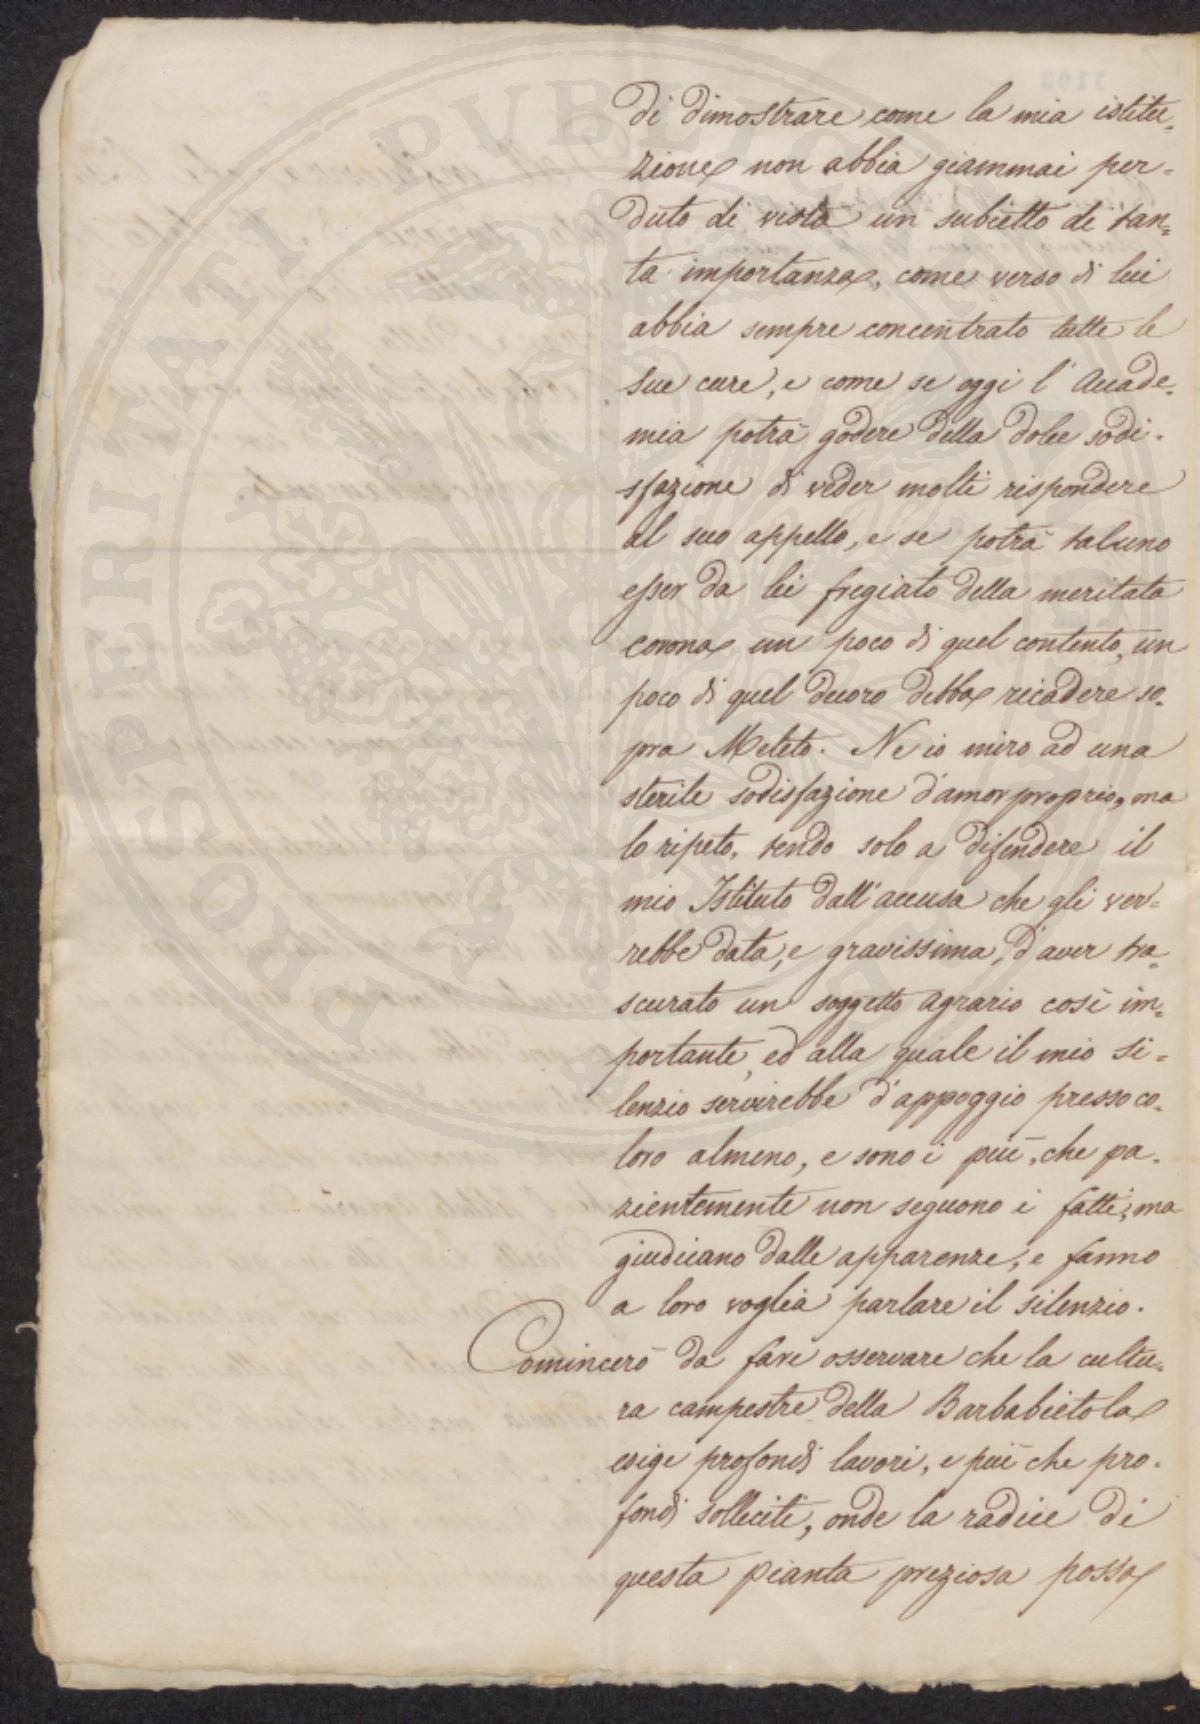 di dimostrare come la mia istitu-
zione non abbia giammai per-
duto di vista un subietto di tan-
ta importanza, come verso di lui
abbia sempre concentrato tutte le
sue cure, e come se oggi l'Accade-
mia potrà godere della dolce sodi-
sfazione di veder molti rispondere
al suo appello, e se potrà taluno
esser da lei fregiato della meritata
corona un poco di quel contento, un
poco di quel decoro debba ricadere so-
pra Meleto. Ne io miro ad una
sterile sodisfazione d'amor proprio, ma
lo ripeto, tendo solo a difendere il
mio Istituto dall'accusa che gli ver-
rebbe data, e gravissima, d'aver tra-
scurato un soggetto agrario così im-
portante, ed alla quale il mio si-
lenzio servirebbe d'appoggio presso co-
loro almeno, e sono i più, che pa-
zientemente non seguono i fatti, ma
giudicano dalle apparenze, e fanno
a loro voglia parlare il silenzio.
Comincerò da fare osservare che la cultu-
ra campestre della Barbabietola
esige profondi lavori, e più che pro-
fondi solleciti, onde la radice di
questa pianta preziosa possa
PROSPERITATI PUBLICAE